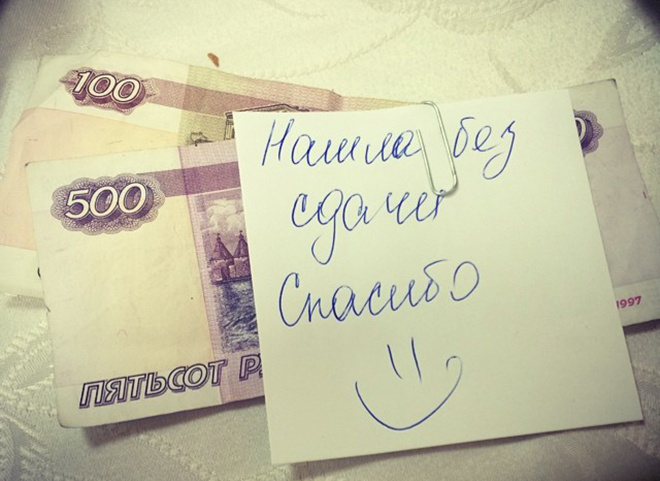 100
500
ПЯТЬСОТ
Нашла без
сдачи
Спасибо
1997